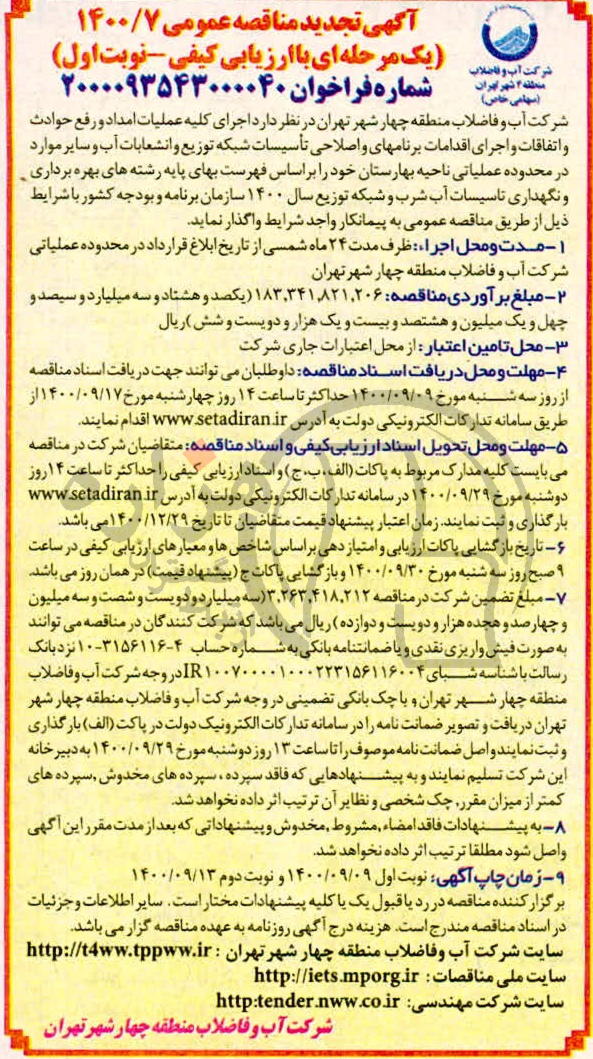 آگهی تجدید مناقصه عمومی ۱۴۰۰/۷
(یک مرحله‌ای با ارزیابی کیفی – نوبت اول)
شماره فراخوان ۲۰۰۰۰۹۳۵۴۳۰۰۰۰۴۰
شرکت آب و فاضلاب
منطقه ۴ شهر تهران
(سهامی خاص)
شرکت آب و فاضلاب منطقه چهار شهر تهران در نظر دارد اجرای کلیه عملیات امداد و رفع حوادث
و اتفاقات و اجرای اقدامات برنامه‌ای و اصلاحی تأسیسات شبکه توزیع و انشعابات آب و سایر موارد
در محدوده عملیاتی ناحیه بهارستان خود را بر اساس فهرست بهای پایه رشته های بهره برداری
و نگهداری تاسیسات آب شرب و شبکه توزیع سال ۱۴۰۰ سازمان برنامه و بودجه کشور با شرایط
ذیل از طریق مناقصه عمومی به پیمانکار واجد شرایط واگذار نماید.
۱- مدت و محل اجراء: ظرف مدت ۲۴ ماه شمسی از تاریخ ابلاغ قرارداد در محدوده عملیاتی
شرکت آب و فاضلاب منطقه چهار شهر تهران
۲- مبلغ برآوردی مناقصه: ۱۸۳,۳۴۱,۸۲۱,۲۰۶ (یکصد و هشتاد و سه میلیارد و سیصد و
چهل و یک میلیون و هشتصد و بیست و یک هزار و دویست و شش) ریال
۳- محل تامین اعتبار: از محل اعتبارات جاری شرکت
۴- مهلت و محل دریافت اسناد مناقصه: داوطلبان می توانند جهت دریافت اسناد مناقصه
از روز سه شنبه مورخ ۱۴۰۰/۰۹/۰۹ حداکثر تا ساعت ۱۴ روز چهارشنبه مورخ ۱۴۰۰/۰۹/۱۷ از
طریق سامانه تدارکات الکترونیکی دولت به آدرس www.setadiran.ir اقدام نمایند.
۵- مهلت و محل تحویل اسناد ارزیابی کیفی و اسناد مناقصه: متقاضیان شرکت در مناقصه
می بایست کلیه مدارک مربوط به پاکات (الف، ب، ج) و اسناد ارزیابی کیفی را حداکثر تا ساعت ۱۴ روز
دوشنبه مورخ ۱۴۰۰/۰۹/۲۹ در سامانه تدارکات الکترونیکی دولت به آدرس www.setadiran.ir
بارگذاری و ثبت نمایند. زمان اعتبار پیشنهاد قیمت متقاضیان تا تاریخ ۱۴۰۰/۱۲/۲۹ می باشد.
۶- تاریخ بازگشایی پاکات ارزیابی و امتیازدهی بر اساس شاخص ها و معیارهای ارزیابی کیفی در ساعت
۹ صبح روز سه شنبه مورخ ۱۴۰۰/۰۹/۳۰ و بازگشایی پاکات ج (پیشنهاد قیمت) در همان روز می باشد.
۷- مبلغ تضمین شرکت در مناقصه ۳,۲۶۳,۴۱۸,۲۱۲ (سه میلیارد و دویست و شصت و سه میلیون
و چهارصد و هجده هزار و دویست و دوازده) ریال می باشد که شرکت کنندگان در مناقصه می توانند
به صورت فیش واریزی نقدی و یا ضمانتنامه بانکی به شماره حساب ۴-۳۱۵۶۱۱۶-۱۰ نزد بانک
رسالت با شناسه شبای IR۱۰۰۷۰۰۰۰۱۰۰۰۲۲۳۱۵۶۱۱۶۰۰۴ در وجه شرکت آب و فاضلاب
منطقه چهار شهر تهران و یا چک بانکی تضمینی در وجه شرکت آب و فاضلاب منطقه چهار شهر
تهران دریافت و تصویر ضمانت نامه را در سامانه تدارکات الکترونیک دولت در پاکت (الف) بارگذاری
و ثبت نمایند و اصل ضمانت نامه موصوف را تا ساعت ۱۳ روز دوشنبه مورخ ۱۴۰۰/۰۹/۲۹ به دبیرخانه
این شرکت تسلیم نمایند و به پیشنهادهایی که فاقد سپرده، سپرده های مخدوش، سپرده های
کمتر از میزان مقرر, چک شخصی و نظایر آن ترتیب اثر داده نخواهد شد.
۸- به پیشنهادات فاقد امضاء، مشروط، مخدوش و پیشنهاداتی که بعد از مدت مقرر این آگهی
واصل شود مطلقا ترتیب اثر داده نخواهد شد.
۹- زمان چاپ آگهی: نوبت اول ۱۴۰۰/۰۹/۰۹ و نوبت دوم ۱۴۰۰/۰۹/۱۳
برگزار کننده مناقصه در رد یا قبول یک یا کلیه پیشنهادات مختار است. سایر اطلاعات و جزئیات
در اسناد مناقصه مندرج است. هزینه درج آگهی روزنامه به عهده مناقصه گزار می باشد.
سایت شرکت آب و فاضلاب منطقه چهار شهر تهران : http://t4ww.tppww.ir
سایت ملی مناقصات: http://iets.mporg.ir
سایت شرکت مهندسی: http:tender.nww.co.ir
شرکت آب و فاضلاب منطقه چهار شهر تهران